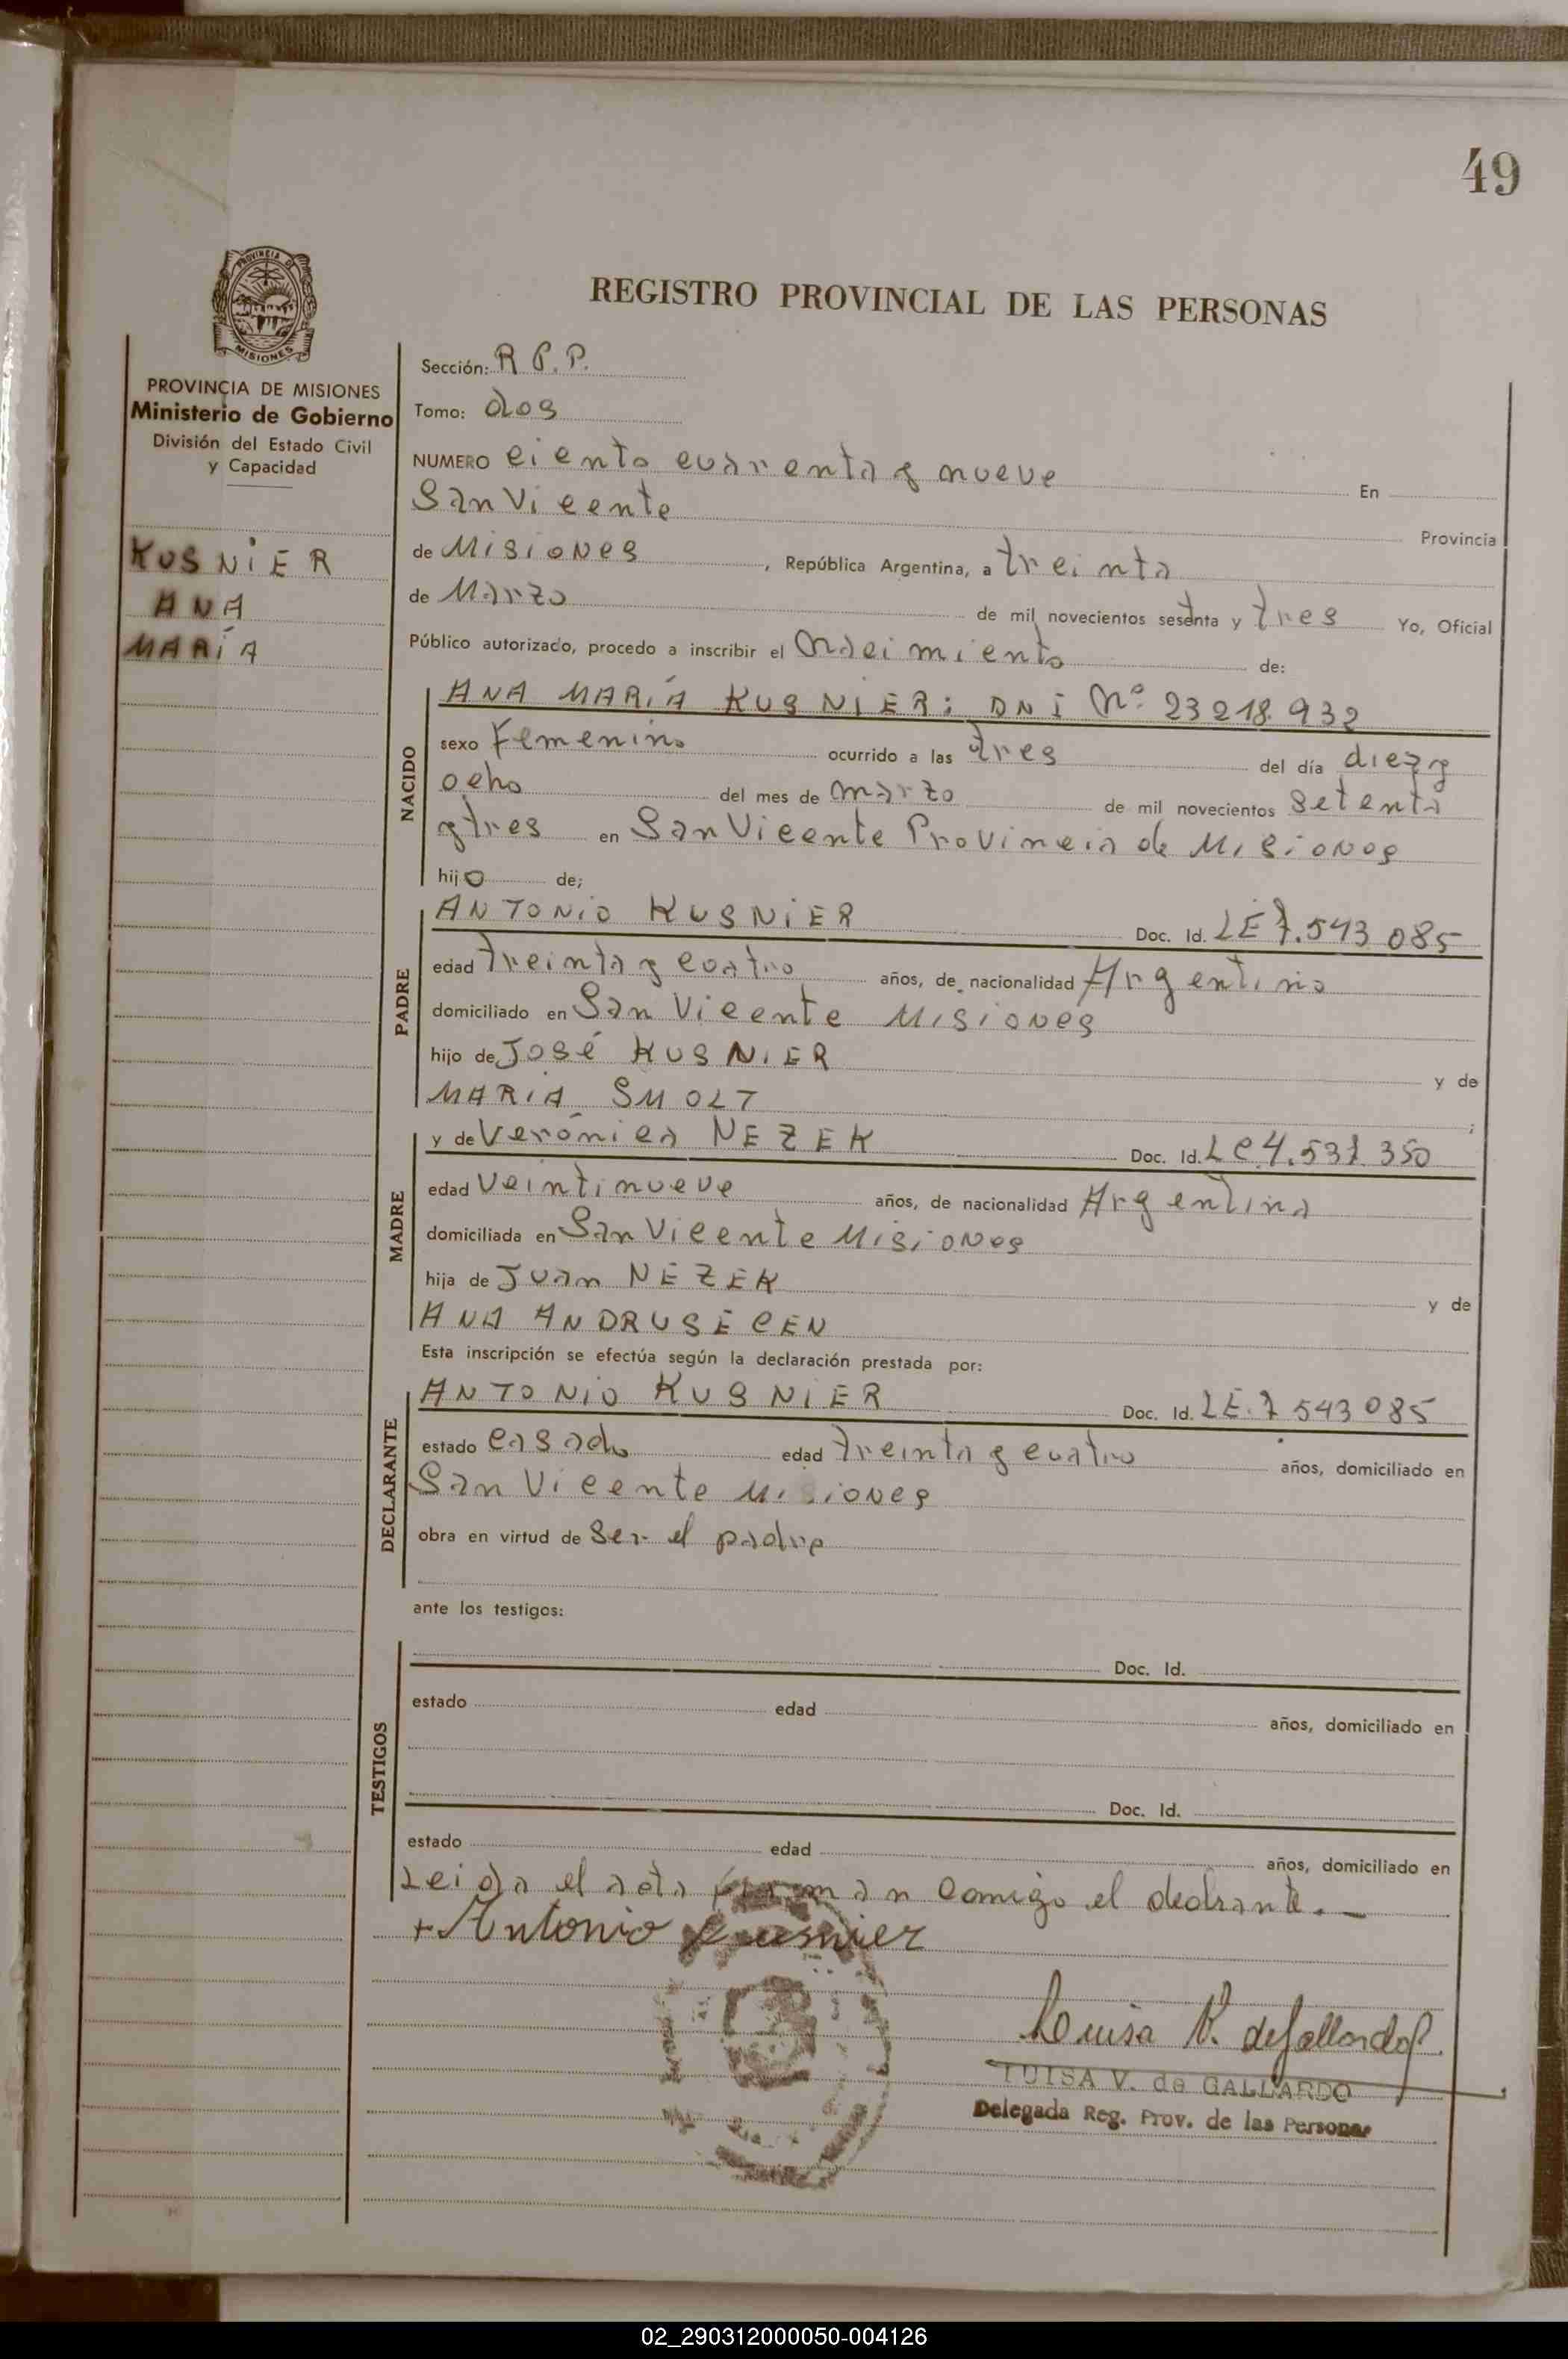 49
PROVINCIA DE
MISIONES
PROVINCIA DE MISIONES
Ministerio de Gobierno
División del Estado Civil
y Capacidad
KUSNIER
ANA
MARÍA
REGISTRO PROVINCIAL DE LAS PERSONAS
Sección: R P. P.
Tomo: dos
NUMERO ciento cuarenta y nueve En
San Vicente Provincia
de Misiones, República Argentina, a treinta
de Marzo de mil novecientos setenta y tres Yo, Oficial
Público autorizado, procedo a inscribir el Nacimiento de:
NACIDO
ANA MARÍA KUSNIER: DNI Nº 23218.932
sexo Femenino ocurrido a las tres del día diez y
ocho del mes de marzo de mil novecientos setenta
y tres en San Vicente Provincia de Misiones
hijo de;
PADRE
ANTONIO KUSNIER Doc. Id. LE 7.543 085
edad treinta y cuatro años, de nacionalidad Argentina
domiciliado en San Vicente Misiones
hijo de José KUSNIER y de
MARIA SMOLT ;
MADRE
y de Verónica NEZEK Doc. Id. LC 4.537 350
edad veintinueve años, de nacionalidad Argentina
domiciliada en San Vicente Misiones
hija de Juan NEZEK y de
ANA ANDRUSECEN
Esta inscripción se efectúa según la declaración prestada por:
DECLARANTE
ANTONIO KUSNIER Doc. Id. LE. 7 543 085
estado casado edad treinta y cuatro años, domiciliado en
San Vicente Misiones
obra en virtud de Ser el padre
ante los testigos:
TESTIGOS
Doc. Id.
estado edad años, domiciliado en
Doc. Id.
estado edad años, domiciliado en
Leida el acta firman comigo el declrante.
+ Antonio Kusnier
Luisa V. de Gallardo
LUISA V. de GALLARDO
Delegada Reg. Prov. de las Personas
02_290312000050-004126